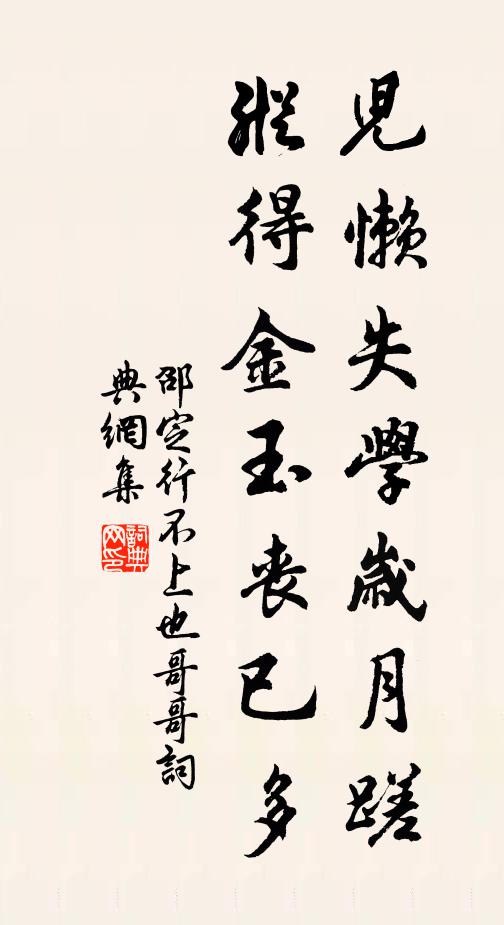 兒懶失學歲月蹉
縱得金玉喪已多
邵定行不上也哥哥詞
典網集
詞典
网印